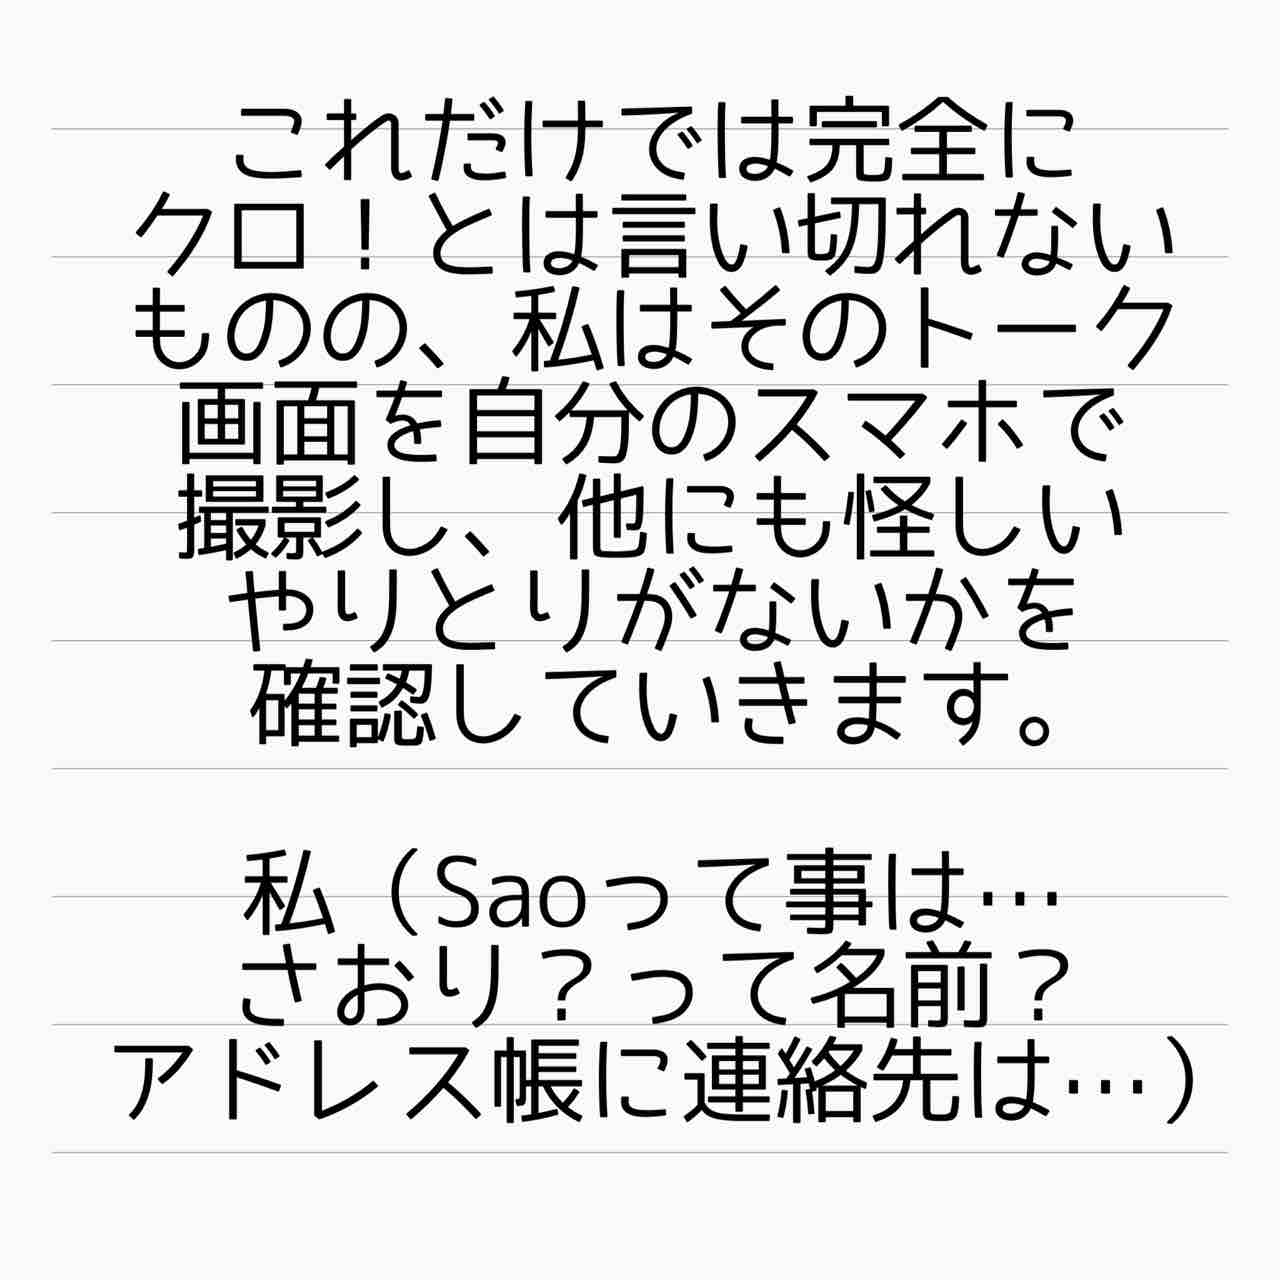 これだけでは完全に
クロ！とは言い切れない
ものの、私はそのトーク
画面を自分のスマホで
撮影し、他にも怪しい
やりとりがないかを
確認していきます。
私（Saoって事は…
さおり？って名前？
アドレス帳に連絡先は…）